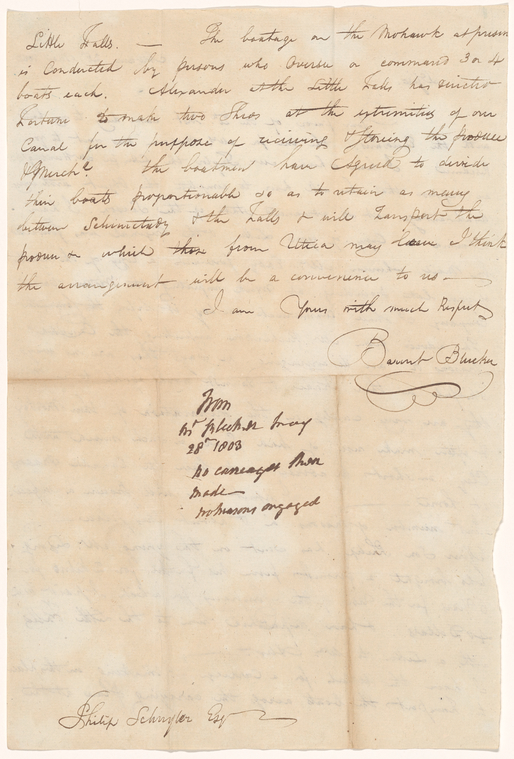 Little Falls. — The boatage on the Mohawk at presen
is Conducted by persons who oversee or command 3 or 4
boats each. Alexander at the Little Falls has
to make two Sheds at the extremities of our
Canal for the purpose of receiving & storing the produce
& Merchᶻ the boatmen have Agreed to divide
their boats proportionable so as to retain as many
between Schenectady & the Falls & will Transport the
produce & which from Utica may I think
the arrangement will be a convenience to us —
I am Yours with much Respect
Barent Bleecker
From
Mʳ Bleecker May
28ᵗʰ 1803
No carriages there
made —
no masons engaged
Philip Schuyler Esqʳ